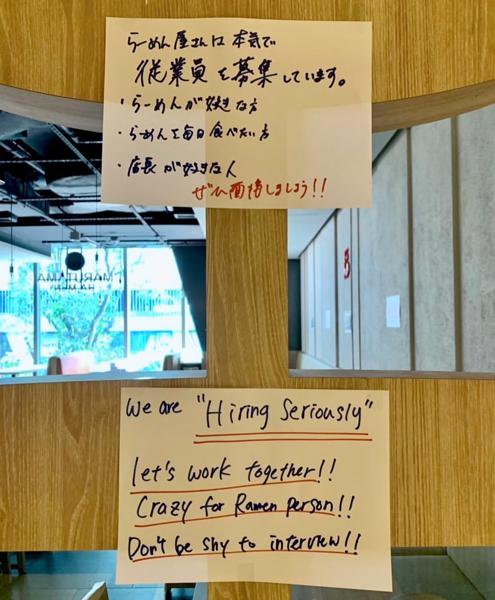 らーめん屋さんは本気で
従業員を募集しています。
・らーめんが好きな方
・らーめんを毎日食べたい方
・店長が好きな人
ぜひ面接しましょう!!
MARUTAMA
RA-MEN
We are "Hiring Seriously"
let's work together!!
Crazy for Ramen person!!
Don't be shy to interview!!